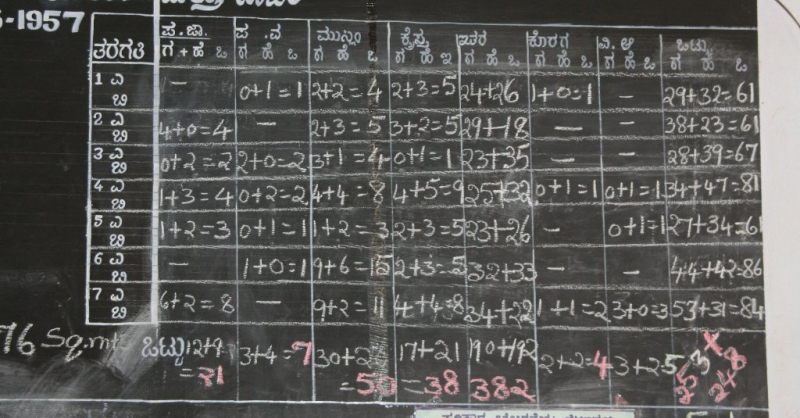 -1957
ತರಗತಿ ಪ.ಜಾ. ಪ.ವ ಮುಸ್ಲಿಂ ಕ್ರೈಸ್ತ ಇತರ ಕೊರಗ ವಿ.ಅ ಒಟ್ಟು
ಗ + ಹೆ ಒ ಗ ಹೆ ಒ ಗ ಹೆ ಒ ಗ ಹೆ ಇ ಗ ಹೆ ಒ ಗ ಹೆ ಒ ಗ ಹೆ ಒ ಗ ಹೆ ಒ
1 ಎ ಬಿ — 0+1=1 2+2=4 2+3=5 24+26 1+0=1 - 29+32=61
2 ಎ ಬಿ 4+0=4 — 2+3=5 3+2=5 29+18 — — 38+23=61
3 ಎ ಬಿ 0+2=2 2+0=2 3+1=4 0+1=1 23+35 — — 28+39=67
4 ಎ ಬಿ 1+3=4 0+2=2 4+4=8 4+5=9 25+32 0+1=1 0+1=1 34+47=81
5 ಎ ಬಿ 1+2=3 0+1=1 1+2=3 2+3=5 23+26 - 0+1=1 27+34=61
6 ಎ ಬಿ — 1+0=1 9+6=15 2+3=5 32+33 - - 44+42=86
7 ಎ ಬಿ 6+2=8 — 9+2=11 4+4=8 34+22 1+1=2 3+0=3 53+31=84
76 Sq.mt ಒಟ್ಟು 12+9 3+4=7 30+2 17+21 190+192 2+2=4 3+2 5
=31 =50 =38 382